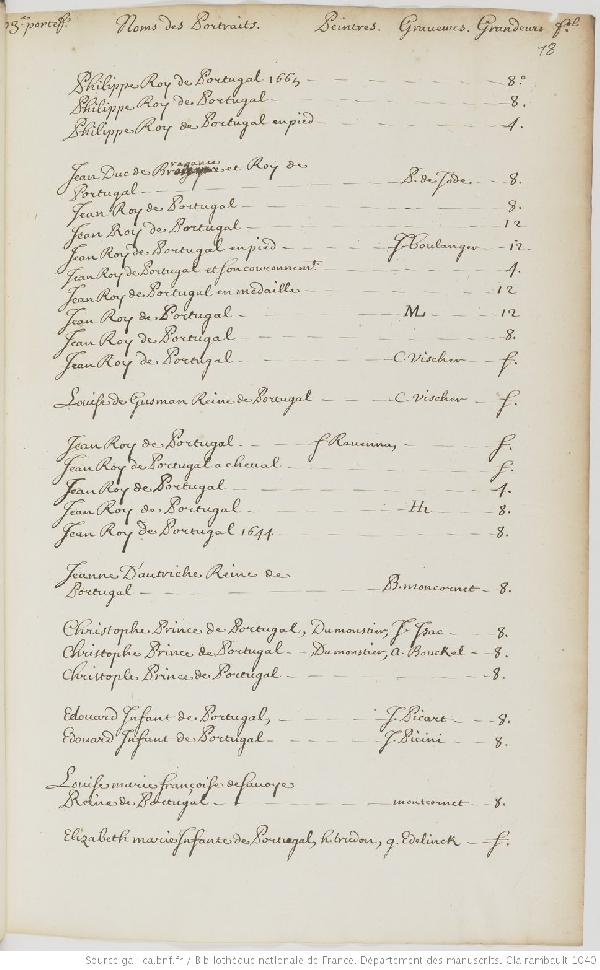 23.e portef.. Noms des Portraits. Peintres. Graveurs. Grandeurs f.l
18
Philippe Roy de Portugal 1665 8.o
Philippe Roy de Portugal 8.
Philippe Roy de Portugal en pied 4.
Jean Duc de Bragance et Roy de
Portugal P. de Jode 8.
Jean Roy de Portugal 8.
Jean Roy de Portugal 12
Jean Roy de Portugal en pied J. Boulanger 12.
Jean Roy de Portugal et son couronnem.t 4.
Jean Roy de Portugal en medaille 12
Jean Roy de Portugal ML 12
Jean Roy de Portugal 8.
Jean Roy de Portugal C. Vischer f.
Louise de Gusman Reine de Portugal C. Vischer f.
Jean Roy de Portugal f Ravennas f.
Jean Roy de Portugal a cheval f.
Jean Roy de Portugal 4.
Jean Roy de Portugal 8.
Jean Roy de Portugal 1644 8.
Jeanne D'autriche Reine de
Portugal B. moncornet 8.
Christophe Prince de Portugal, Dumonstier, J. Isac 8.
Christophe Prince de Portugal Dumonstier, a. Bouckel 8.
Christople Prince de Portugal 8.
Edouard Infant de Portugal, J. Picart 8.
Edouard Infant de Portugal J. Picini 8.
Louise marie françoise de savoye
Reine de Portugal montcornet 8.
Elizabeth marie Infante de Portugal, h. tridon, g. Edelinck f.
Source gallica.bnf.fr / Bibliothèque nationale de France. Département des manuscrits. Clairambault 1040